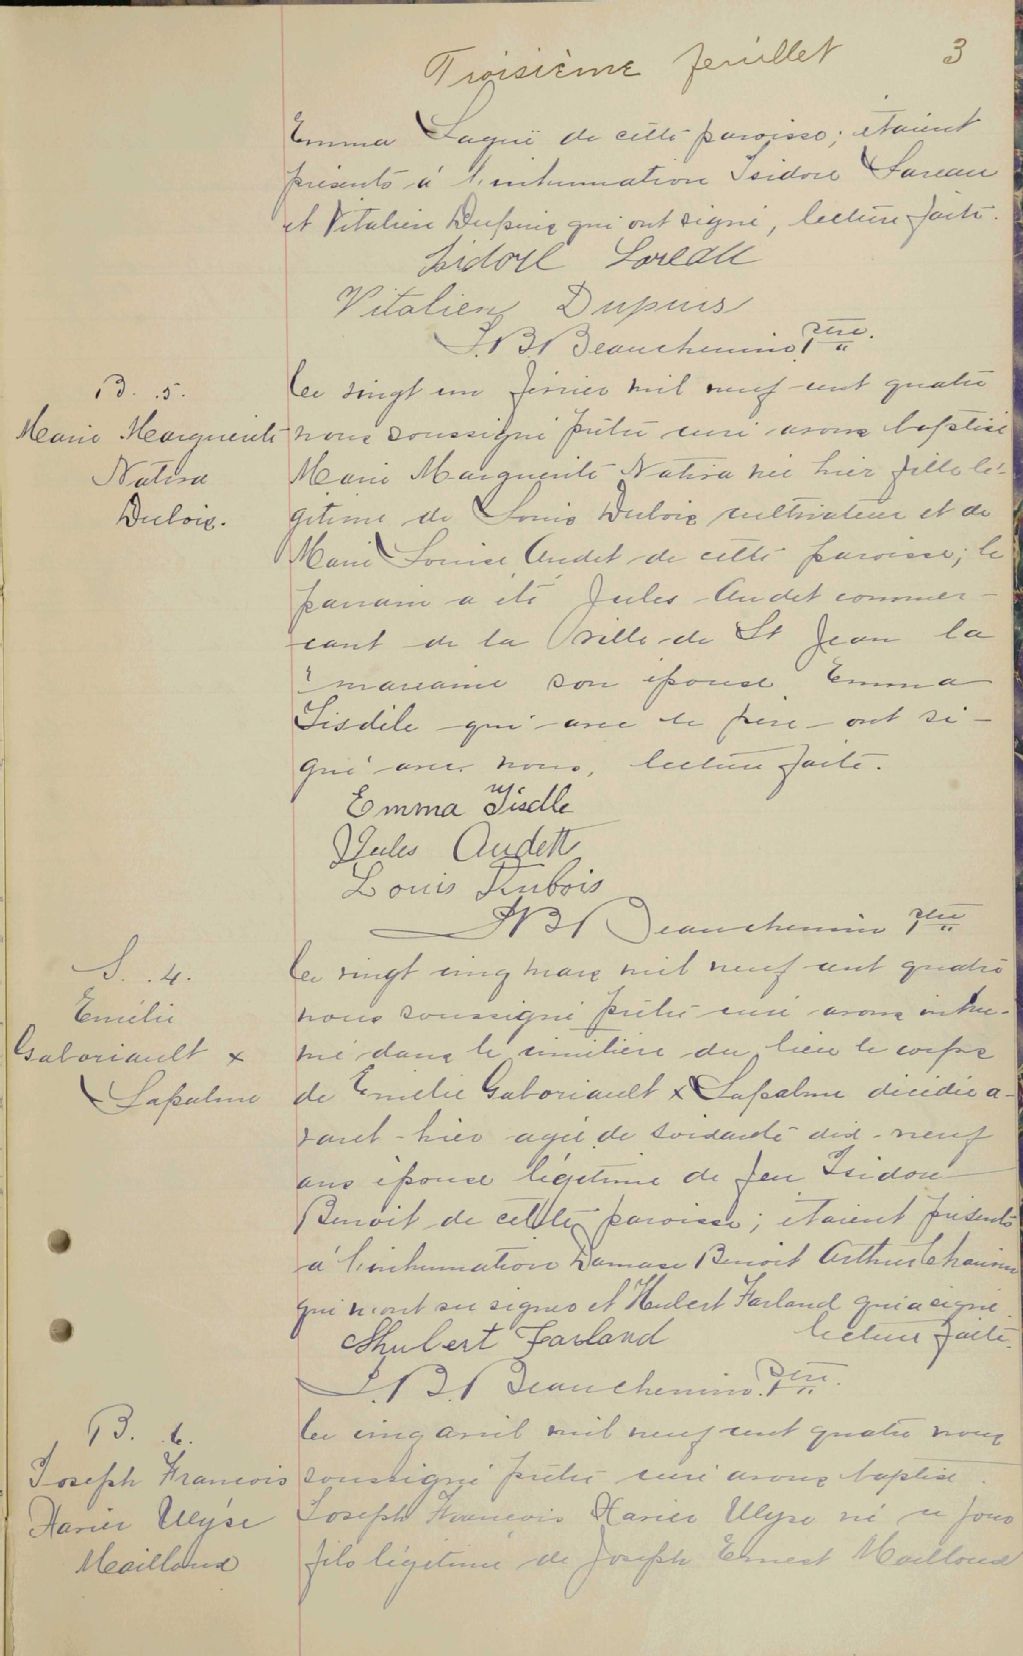 Troisième feuillet 3
Emma Lagüe de cette paroisse; étaient
présents à l'inhumation Isidore Lareau
et Vitalien Dupuis qui ont signé, lecture faite.
Isidore Loreau
Vitalien Dupuis
J.B. Beauchemin Ptre.
B. 5.
Marie Marguerite
Natisa
Dubois.
Le vingt un février mil neuf cent quatre
nous soussigné prêtre curé avons baptisé
Marie Marguerite Natisa née hier fille lé-
gitime de Louis Dubois cultivateur et de
Marie Louise Audet de cette paroisse; le
parrain a été Jules Audet commer-
cant de la ville de St Jean la
marraine son épouse Emma
Lisdèle qui avec le père ont si-
gné avec nous, lecture faite.
Emma Lisdle
Jules Audett
Louis Dubois
J B Beauchemin Ptre
S. 4.
Emélie
Gaboriault x
Lapalme
Le vingt cinq mars mil neuf cent quatre
nous soussigné prêtre curé avons inhu-
mé dans le cimetière du lieu le corps
de Emélie Gaboriault x Lapalme décédée a-
vant-hier agée de soixante dix-neuf
ans épouse légitime de feu Isidore
Benoit de cette paroisse; étaient présents
à l'inhumation Damase Benoit Arthur
qui n'ont su signer et Hubert Farland qui a signé
lecture faite.
Hubert Farland
J.B. Beauchemin Ptre.
B. 6.
Joseph Francois
Xavier Ulyse
Mailloux
Le cinq avril mil neuf cent quatre nous
soussigné prêtre curé avons baptisé
Joseph François Xavier Ulyse né ce jour
fils légitime de Joseph Ernest Mailloux